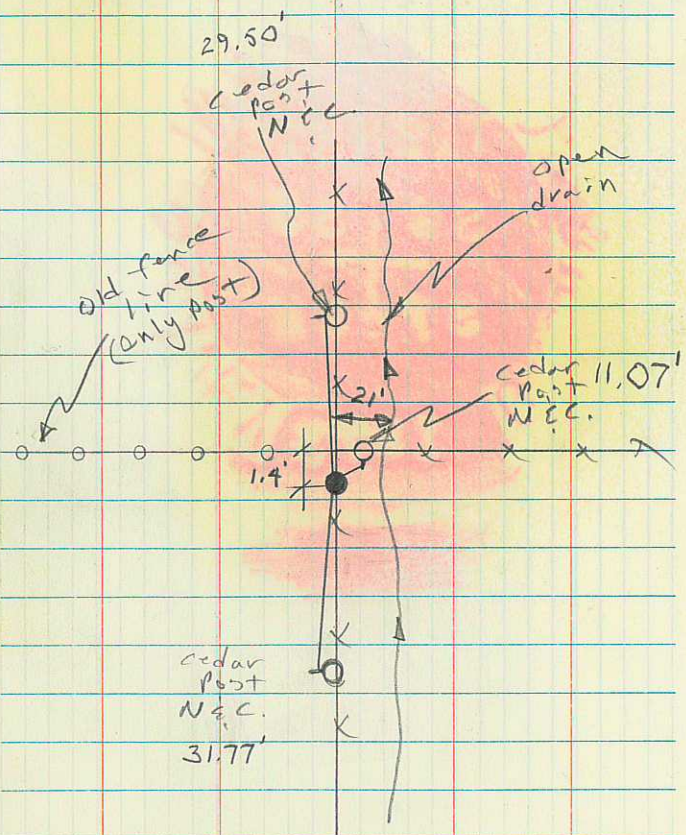 29.50'
cedar
post
N & C.
open
drain
old fence
line
(only post)
cedar 11.07'
post
N & C.
21'
1.4'
cedar
post
N & C.
31.77'